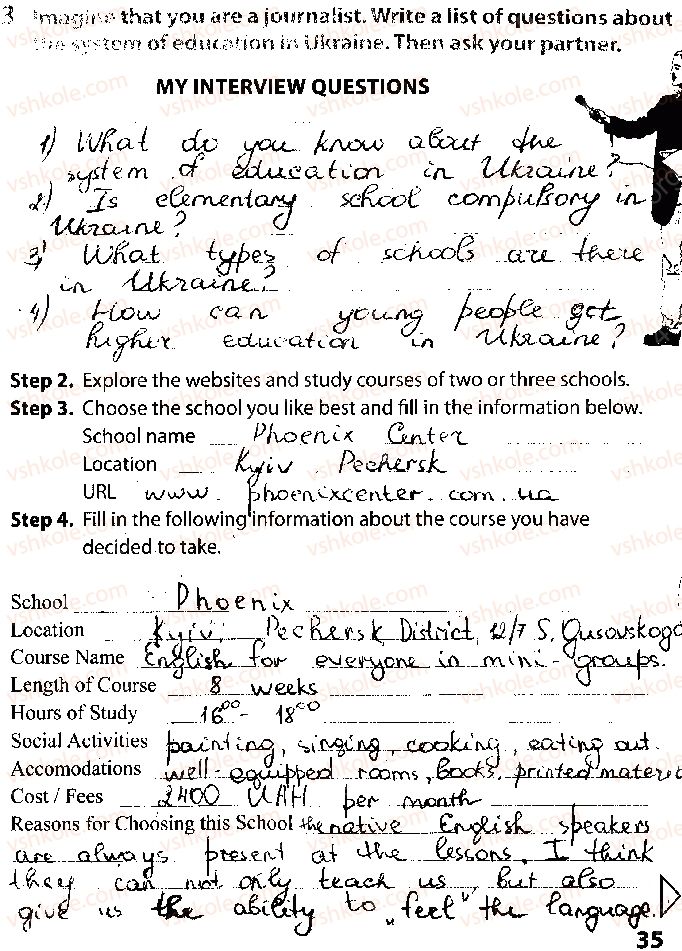 3 Imagine that you are a journalist. Write a list of questions about
the system of education in Ukraine. Then ask your partner.
MY INTERVIEW QUESTIONS
1) What do you know about the
system of education in Ukraine?
2) Is elementary school compulsory in
Ukraine?
3) What types of schools are there
in Ukraine?
4) How can young people get
higher education in Ukraine?
Step 2. Explore the websites and study courses of two or three schools.
Step 3. Choose the school you like best and fill in the information below.
School name Phoenix Center
Location Kyiv Pechersk
URL www.phoenixcenter.com.ua
Step 4. Fill in the following information about the course you have
decided to take.
School Phoenix
Location Kyiv, Pechersk District, 12/7 S. Gusovskogo
Course Name English for everyone in mini-groups.
Length of Course 8 weeks
Hours of Study 16⁰⁰ - 18⁰⁰
Social Activities painting, singing, cooking, eating out.
Accomodations well-equipped rooms, books, printed materi
Cost / Fees 2400 UAH per month
Reasons for Choosing this School the native English speakers
are always present at the lessons. I think
they can not only teach us, but also
give us the ability to "feel" the language.
35
vshkole.com